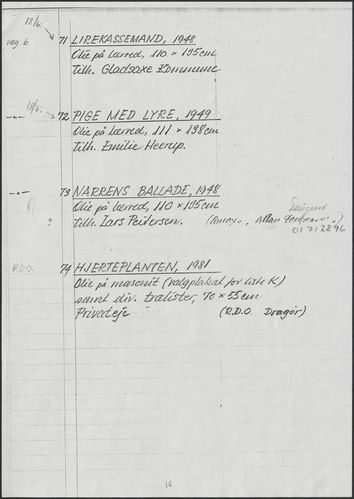 18/6.
væg b. 71 LIREKASSEMAND, 1948
Olie på lærred, 110 × 195 cm
tilh. Gladsaxe Kommune
72 PIGE MED LYRE, 1949
Olie på lærred, 111 × 198 cm
tilh. Emilie Heerup.
73 NARRENS BALLADE, 1948
Olie på lærred, 110 × 195 cm
? tilh. Lars Pedersen. Allan
01 712896
R.D.O. 74 HJERTEPLANTEN, 1981
Olie på masonit (valgplakat for liste K)
samt div. trælister, 70 × 55 cm
Privateje (R.D.O. Dragør)
16